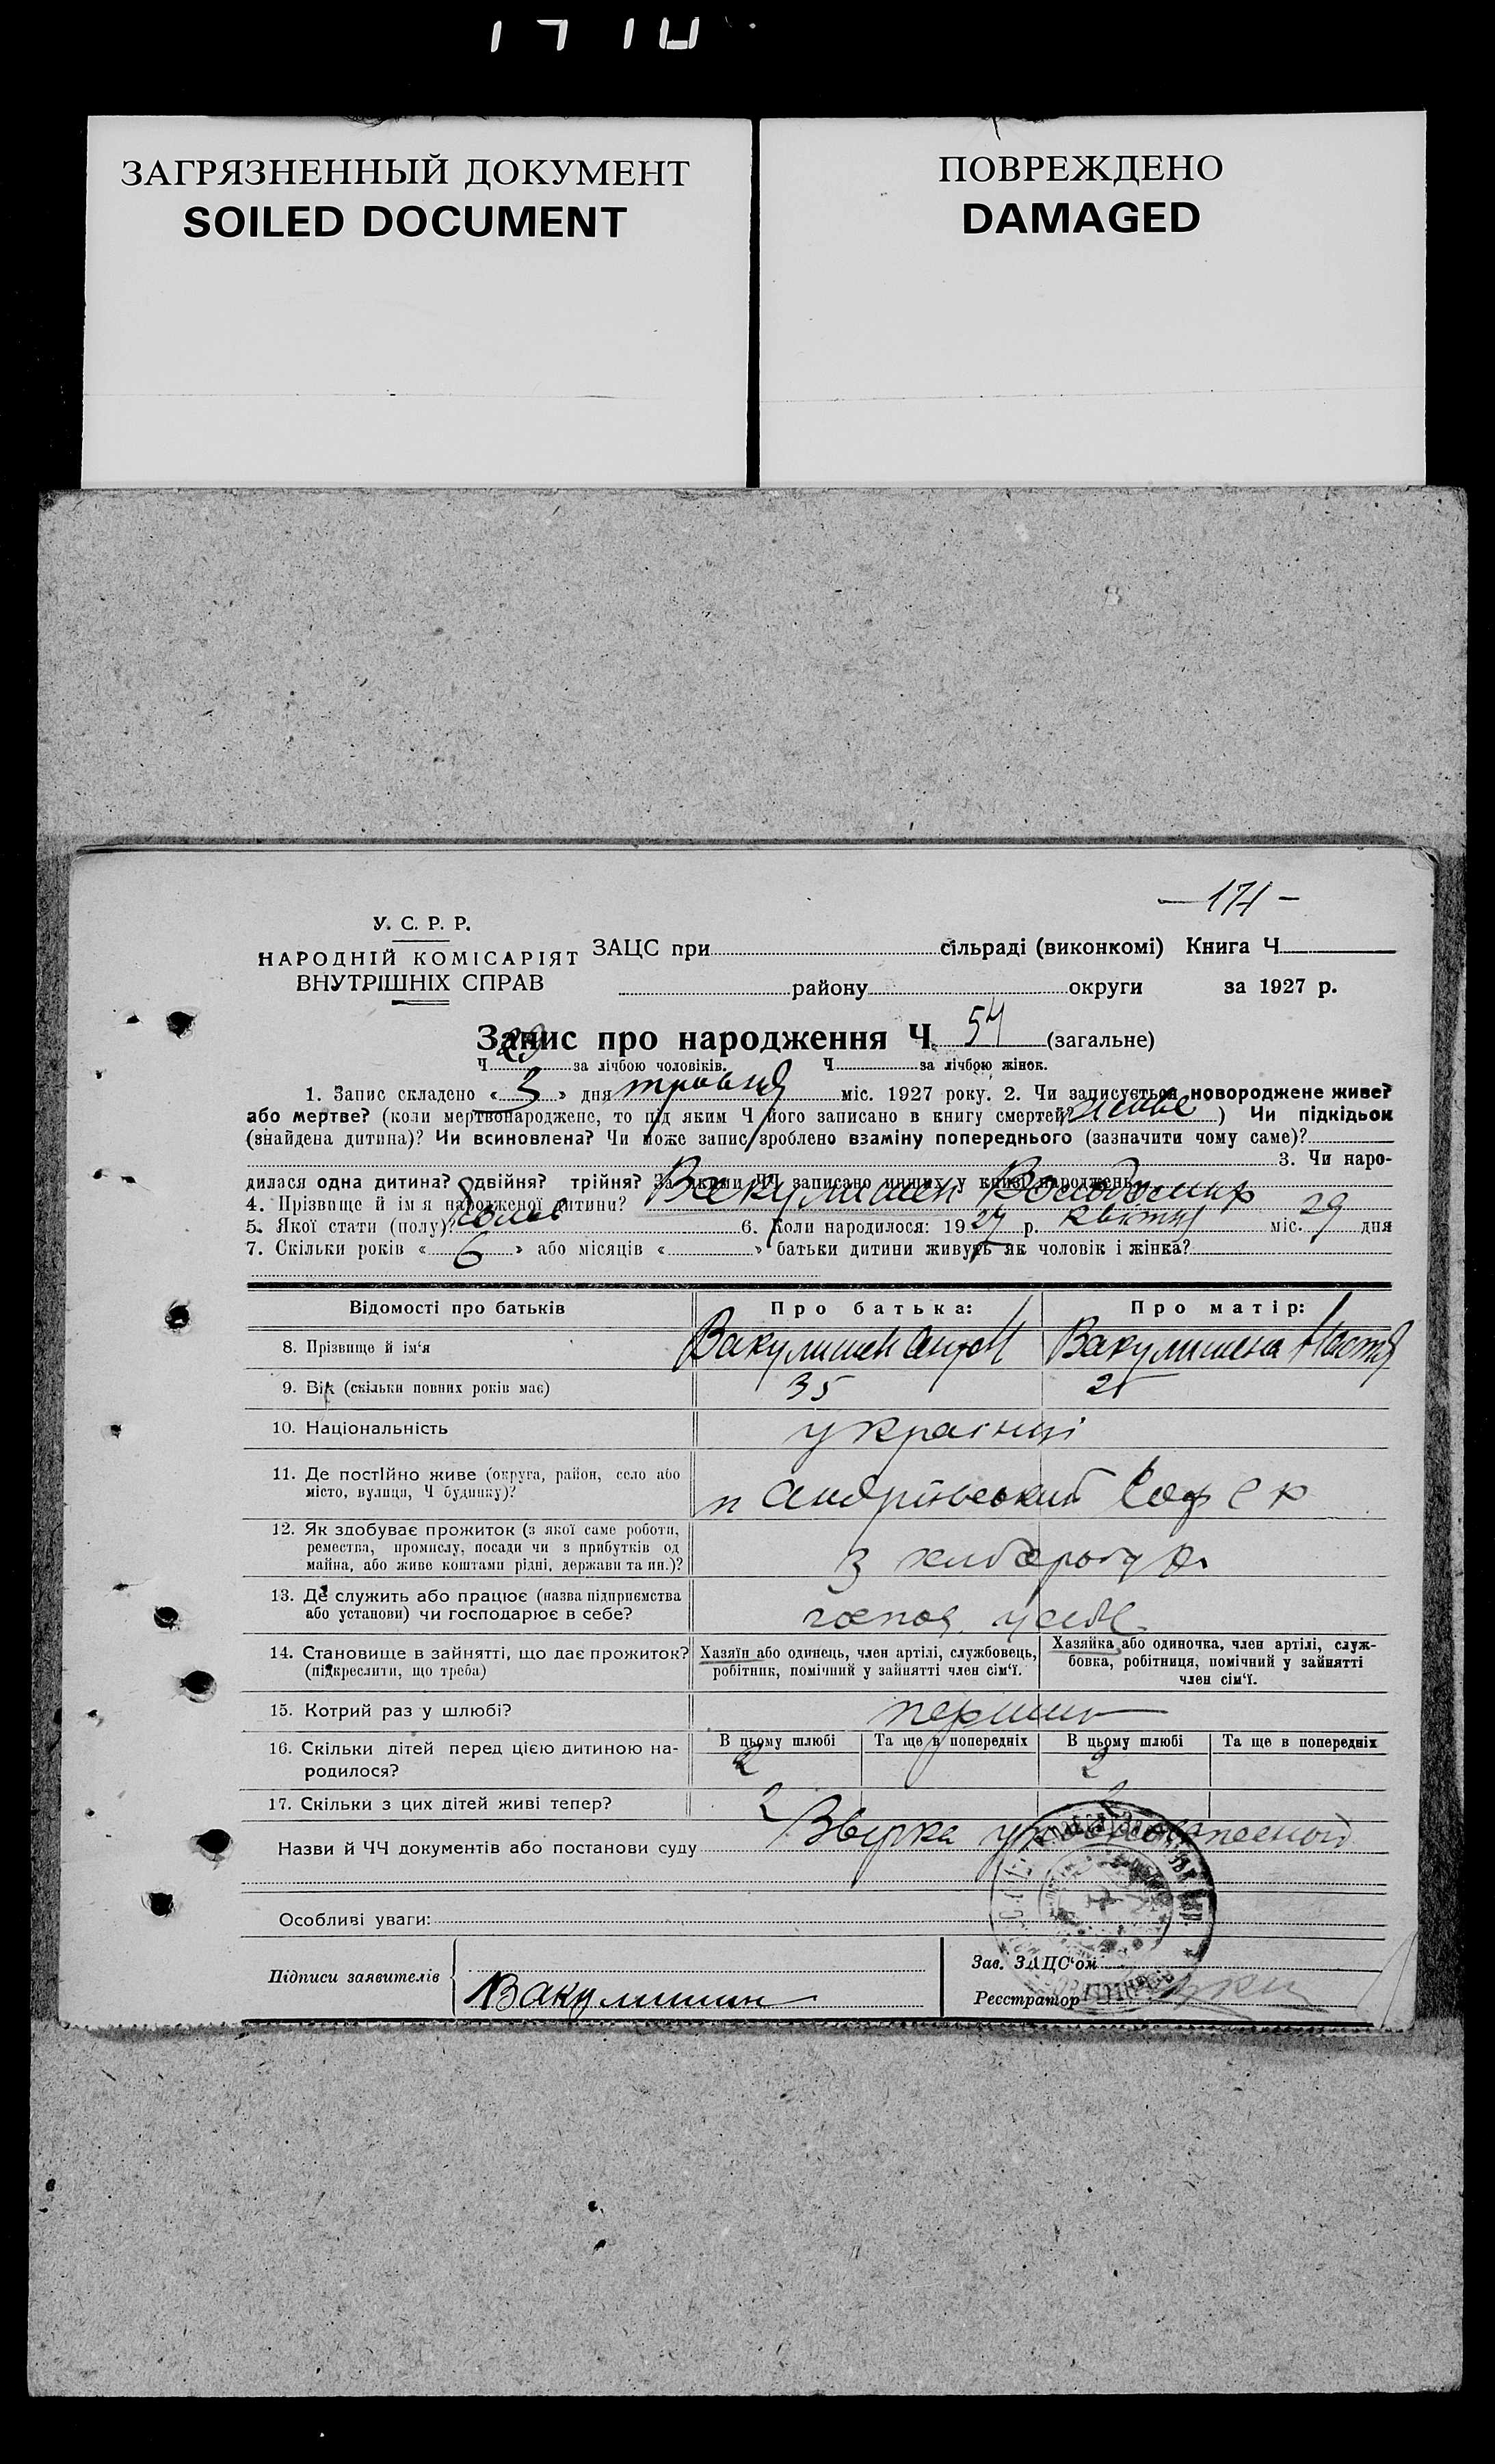 ЗАГРЯЗНЕННЫЙ ДОКУМЕНТ
SOILED DOCUMENT
ПОВРЕЖДЕНО
DAMAGED
— 171 —
У. С. Р. Р.
НАРОДНІЙ КОМІСАРІЯТ
ВНУТРІШНІХ СПРАВ
ЗАЦС при сільраді (виконкомі) Книга Ч
району округи за 1927 р.
Запис про народження Ч. 54 (загальне)
Ч. 29 за лічбою чоловіків. Ч. за лічбою жінок.
1. Запис складено « 3 » дня травня міс. 1927 року. 2. Чи записується новороджене живе?
або мертве? (коли мертвонароджене, то під яким Ч його записано в книгу смертей? живе ) Чи підкідьок
(знайдена дитина)? Чи всиновлена? Чи може запис зроблено взаміну попереднього (зазначити чому саме)?
3. Чи наро-
дилася одна дитина? двійня? трійня? За якими ЧЧ записано инших у книзі народжень
4. Прізвище й ім'я народженої дитини? Вакулишен Володомир
5. Якої стати (полу)? 6. Коли народилося: 1927 р. квітня міс. 29 дня
7. Скільки років « 6 » або місяців « » батьки дитини живуть як чоловік і жінка?
Відомості про батьків Про батька: Про матір:
8. Прізвище й ім'я Вакулишен Антон Вакулишена Настя
9. Вік (скільки повних років має) 35 25
10. Національність українці
11. Де постійно живе (округа, район, село або
місто, вулиця, Ч будинку)? Андріївський
12. Як здобуває прожиток (з якої саме роботи,
ремества, промислу, посади чи з прибутків од
майна, або живе коштами рідні, держави та ин.)? з
13. Де служить або працює (назва підприємства
або установи) чи господарює в себе? господ. у себе
14. Становище в зайнятті, що дає прожиток?
(підкреслити, що треба)
Хазяїн або одинець, член артілі, службовець,
робітник, помічний у зайнятті член сім'ї.
Хазяйка або одиночка, член артілі, служ-
бовка, робітниця, помічний у зайнятті
член сім'ї.
15. Котрий раз у шлюбі? перший
16. Скільки дітей перед цією дитиною на-
родилося?
В цьому шлюбі Та ще в попередніх В цьому шлюбі Та ще в попередніх
2 2
17. Скільки з цих дітей живі тепер? 2
Назви й ЧЧ документів або постанови суду
Особливі уваги:
Підписи заявителів Вакулишин
Зав. ЗАЦС'ом
Реєстратор